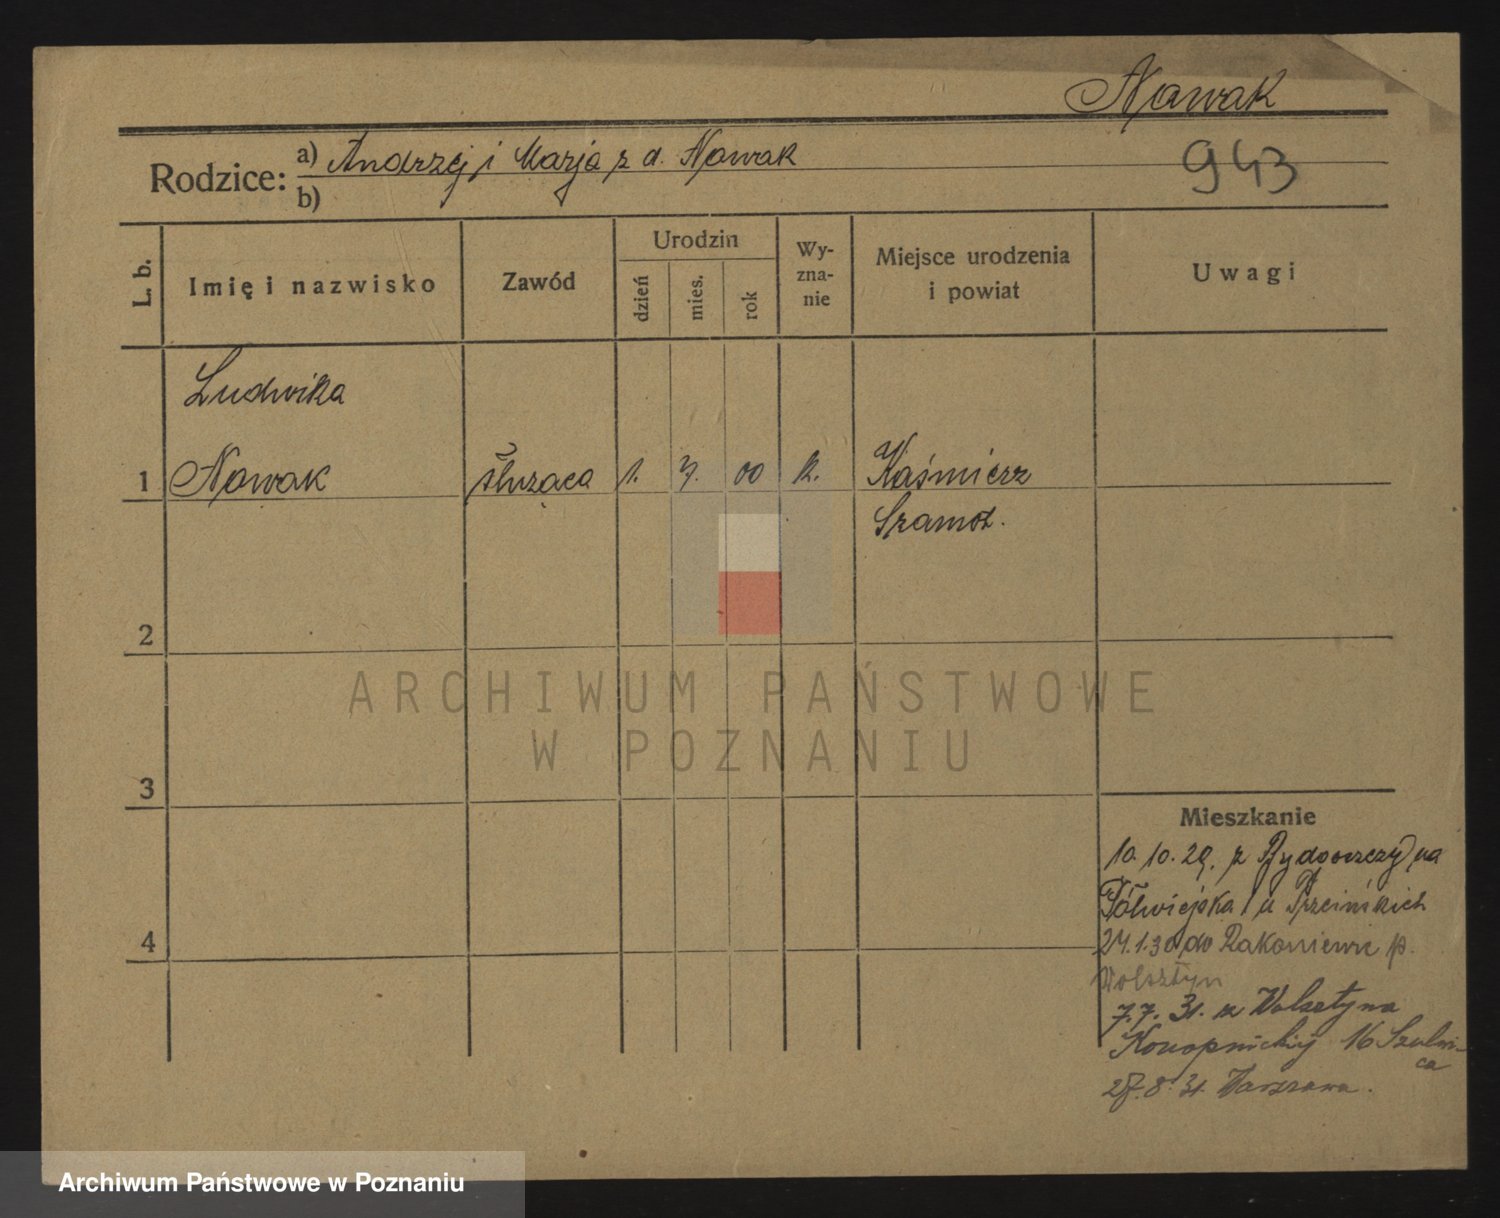 Nowak
943
Rodzice:
a) Andrzej i Marja z d. Nowak
b)
L. b.
Imię i nazwisko
Zawód
Urodzin
dzień
mies.
rok
Wy-
zna-
nie
Miejsce urodzenia
i powiat
Uwagi
Ludwika
1 Nowak służąca 1. 7. 00 k. Kaźmierz
Szamot.
2
3
4
Mieszkanie
10.10.29. z Bydgoszczy na
Półwiejska 1 u
24.1.30 do Rakoniewic p.
Wolsztyn
7.7. 31. z Wolsztyna
Konopnickiej 16
27.8.31. Warszawa.
ARCHIWUM PAŃSTWOWE
W POZNANIU
Archiwum Państwowe w Poznaniu